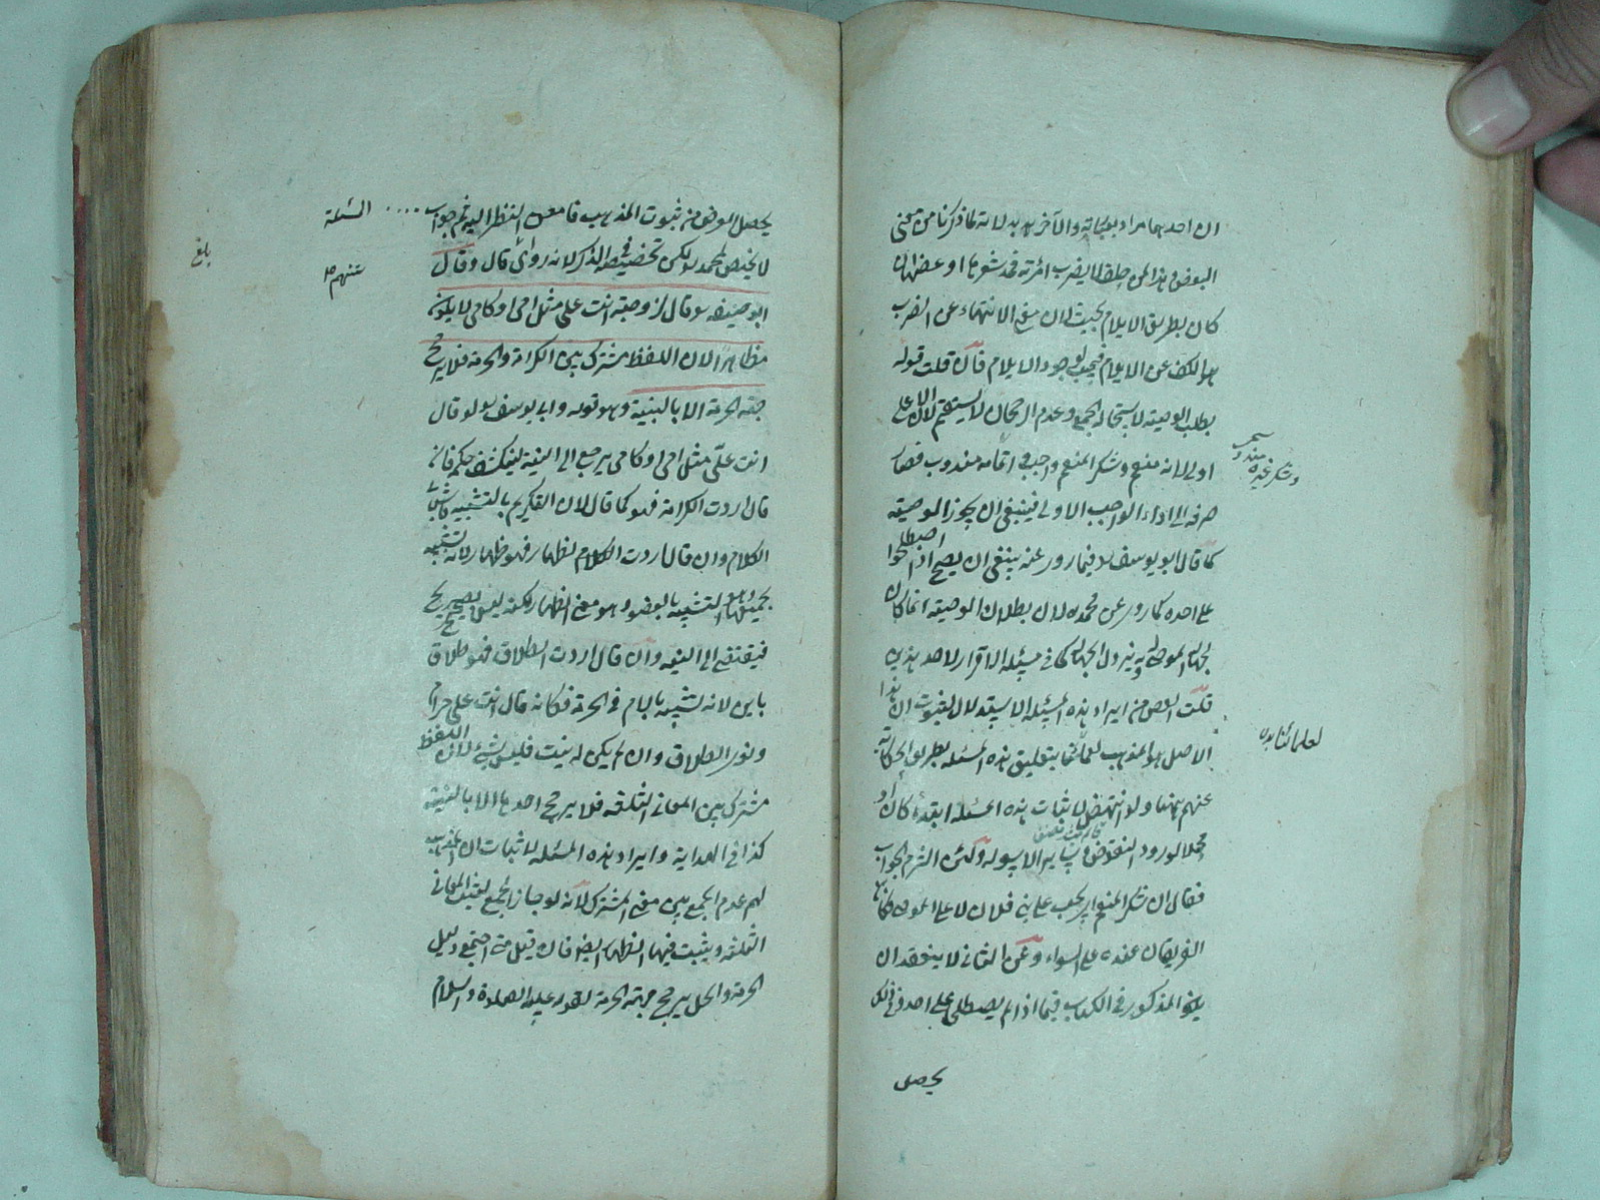 ان احدهما مراد بعبارته والآخر بدلالة لما ذكرنا من تعين
البعوض في هذا لمن حلف لا يضرب امرأته فمد شعرها او عضها لان
كان بطريق الايلام يحنث لان معنى الانتهاء عن الضرب
هو الكف عن الايلام فيحنث بوجود الايلام فان قلت قوله
بطلب الوصية لاستحالة الجمع وعدم الرجحان لا يستقيم لان الاعلى
اولى لانه منعم وشكر المنعم واجب واتمامه مندوب فصار
صرفه الى اداء الواجب الاولى فينبغي ان يجوز الوصية
كما قال ابو يوسف فيما روى عنه ينبغي ان يصح اذا اصطلحوا
على احده كما روى عن محمد لان بطلان الوصية انما كان
لجهالة الموصى له ويزول الجهالة كما في مسئلة الاقرار لاحد هذين
قلت الغرض من ايراد هذه المسئلة الاستدلال لثبوت ان هذا
الاصل هو المذهب لعلمائنا بتعليق هذه المسئلة بطريق الحكاية
عنهم ولو انتهض لاثبات هذه المسئلة ابتداء كان
محلا لورود النقوض وسائر الاسولة ولئن التزم الجواب
فقال ان شكر المنعم يجب على فلان لا على الموصى فكان
الفريقان عنده على السواء وعن الثاني لا ينعقد ان
يلغو المذكور في الكتاب فيما اذا لم يصطلحا على احد في ذلك
يحصل
وشكر غيره مندوب
لعلمائنا
يحصل الغرض من ثبوت المذهب فامعن النظر اليه ثم جواب .... المسئلة
لا يختص لمحمد لكن تخصيصه في الذكر لانه راوى قال وقال
ابو حنيفة لو قال لزوجته انت علي مثل امي او كامي لا يكون
مظاهرا لان اللفظ مشترك بين الكرامة والحرمة فلا يترجح
جهة الحرمة الا بالنية وهو قوله وابي يوسف ولو قال
انت علي مثل امي او كامي يرجع الى النية لينكشف حكمه فان
قال اردت الكرامة فهو كما قال لان التكريم بالتشبيه فاش في
الكلام وان قال اردت الظهار فهو ظهار لانه تشبيه
بجميعها وهو التشبيه بالعضو وهو معنى الظهار لكنه ليس بصريح
فيفتقر الى النية وان قال اردت الطلاق فهو طلاق
باين لانه تشبيه بالام في الحرمة فكانه قال انت علي حرام
ونوى الطلاق وان لم يكن له نية فليس بشيء لان اللفظ
مشترك بين المعاني الثلثة فلا يترجح احدها الا بالنية
كذا في الهداية وايراد هذه المسئلة لاثبات ان المذهب
لهم عدم الجمع بين معنى المشترك لانه لو جاز الجمع لثبت المعاني
الثلثة ويثبت فيها الظهار ايضا فان قيل متى اجتمع دليل
الحرمة والحل يترجح جهة الحرمة لقوله عليه الصلوة والسلام
عنهم
بلغ